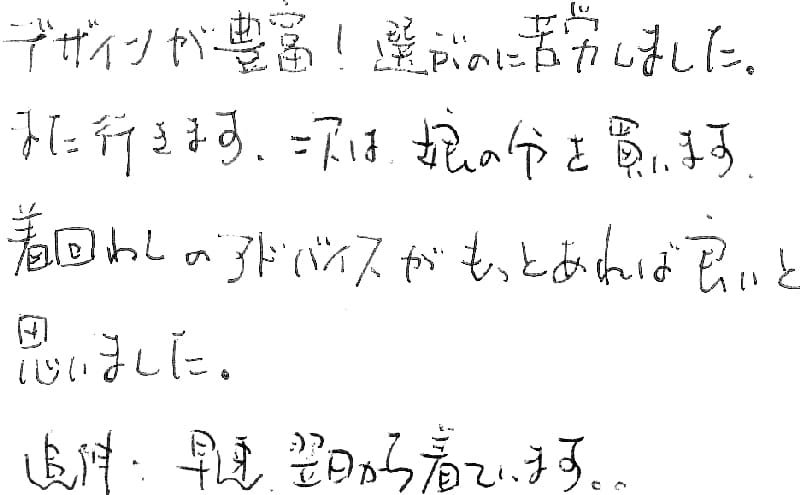 デザインが豊富！選ぶのに苦労しました。
また行きます。次は娘の分を買います。
着回わしのアドバイスがもっとあれば良いと
思いました。
追伸・早速翌日から着ています。。